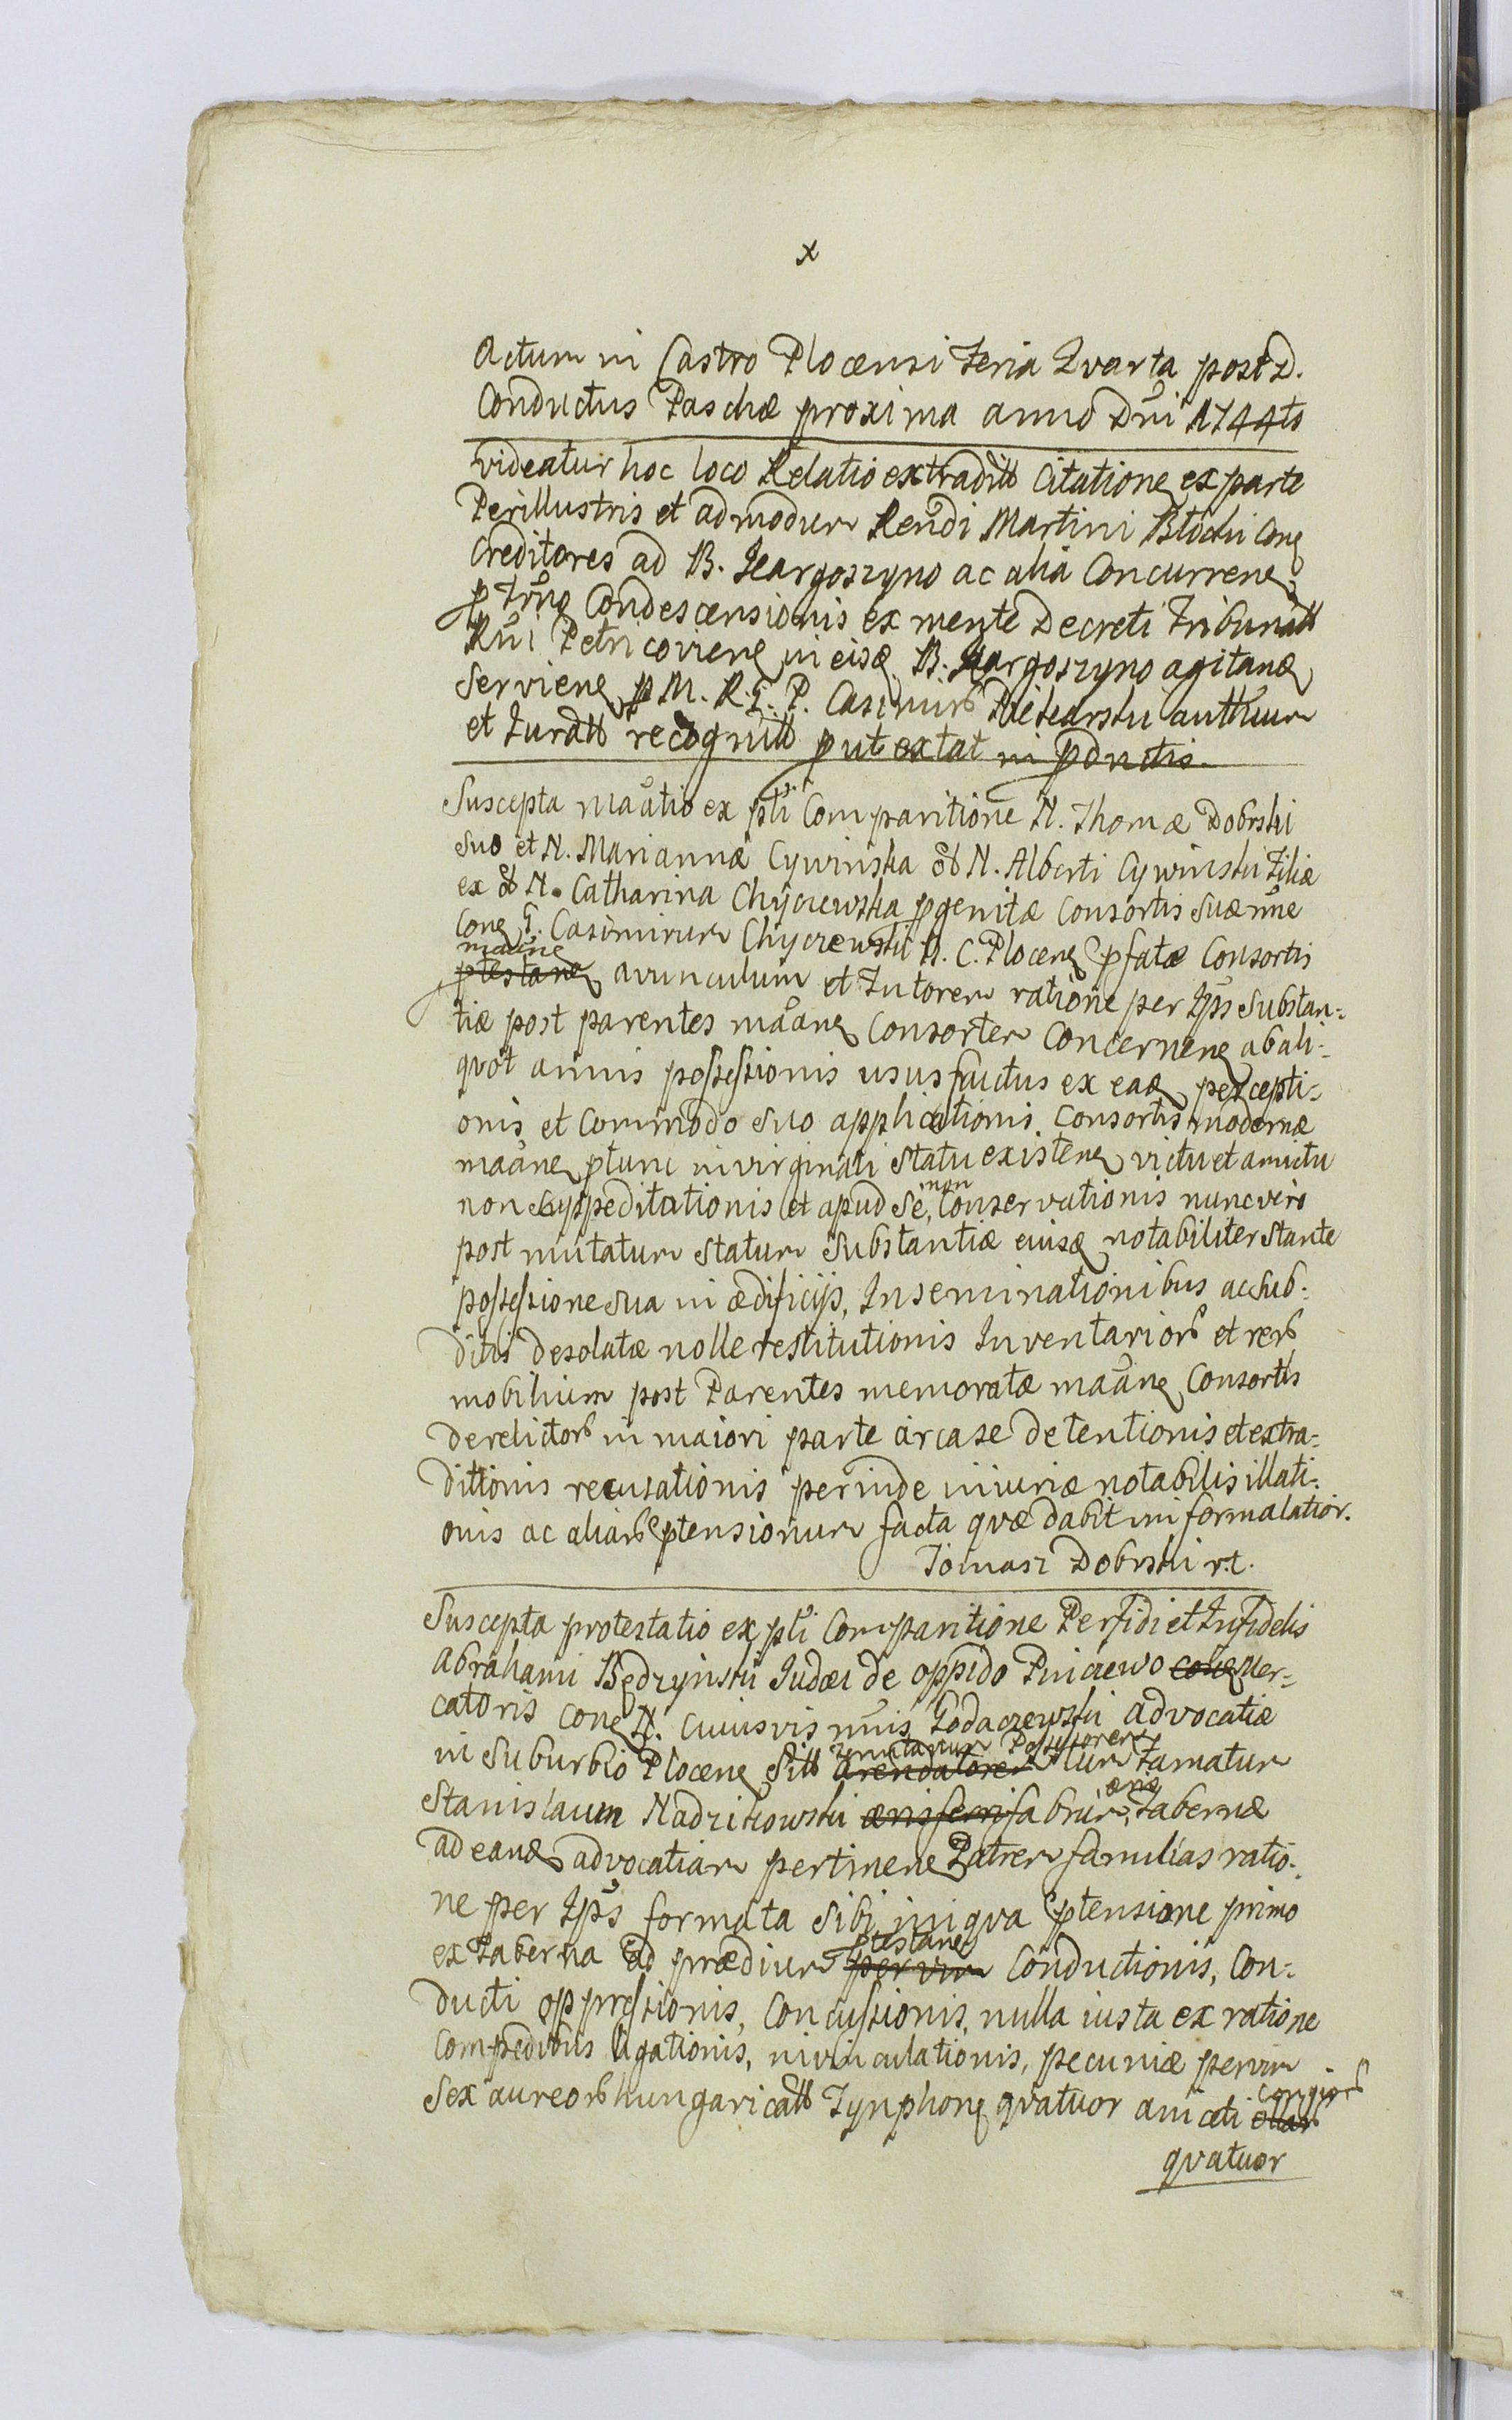 x
Actum in Castro Plocensi Feria Qvarta post D.
Conductus Paschæ proxima anno Dni 1744to
Videatur hoc loco Relatio extradit Citatione ex parte
Perillustris et admodum Rendi Martini Błocki cone
Creditores ad B. Kargoszyno ac alia Concurrene
p Trino Condescensionis ex mente Decreti Tribunalt
Rni Petricoviene in eisd B. Kargoszyno agitand
Serviene p M. R. G. P. Casimirum authum
et Juratt recognitt put extat in pdnctis.
Suscepta maãtio ex pti Comparitione N. Thomæ Dobrski
suo et N. Mariannæ Cywinska olt N. Alberti Cywinski Filiæ
ex olt N. Catharina Chyczewska pgenitæ Consortis Suæ nne
cone G. Casimirum Chyczewski N. C. Plocene pfatæ Consortis
maãne
ptestane avunculum et Tutorem ratione per Ips Substan=
tiæ post parentes maãne Consortem Concernene ab ali=
qvot annis possessionis ususfructus ex ead percepti=
onis et Commodo suo applicationis Consortis modernæ
maãne ptunc in virginali Statu existene victu et amictu
non suppeditationis et apud se non Conservationis nunc vero
post mutatum statum Substantiæ eiusd notabiliter stante
possessione sua in ædificijs, Inseminationibus ac sub=
ditis desolatæ nolle restitutionis Inventarior et rer
mobilium post Parentes memoratæ maãne Consortis
derelictor in maiori parte circa se detentionis et extra=
dittionis recusationis perinde iniuriæ notabilis illati=
onis ac aliar ptensionum facta qvæ dabit in forma latior.
Tomasz Dobrski r.t.
Suscepta protestatio ex pti Comparitione Perfidi et Infidelis
Abrahami Będzyński Judæi de oppido Pniewo Mer=
catoris cone N. cuiusvis nnis Godaczewski advocatiæ
tenutarium Possessorem
in Suburbio Plocene Sitt arendatorem tum Famatum
Stanislaum Nadzikowski æris ferri fabrum æne Tabernæ
ad eand advocatiam pertinene Patrem familias ratio=
ne per Ips formata sibi iniqva ptensione primo
ptestane
ex Taberna ad prædium per vim Conductionis, Con=
ducti oppressionis, Concussionis, nulla iusta ex ratione
Compedibus ligationis, invinculationis, pecuniæ per vim
congior
Sex aureor hungaricalt Tynphone qvatuor ollar
qvatuor